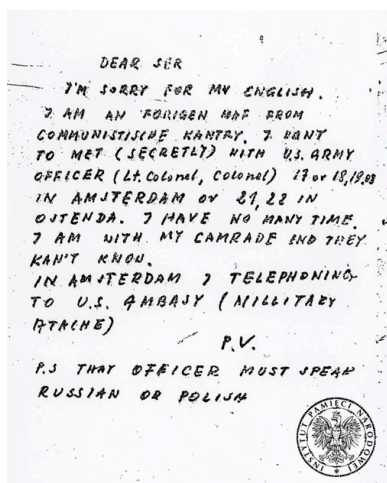 DEAR SER
I'M SORRY FOR MY ENGLISH.
I AM AN FORIGEN MAF FROM
COMMUNISTISCHE KANTRY. I WANT
TO MET (SECRETLY) WITH U.S. ARMY
OFFICER (Lt. Colonel, Colonel) 17 or 18,19.08
IN AMSTERDAM or 21,22 IN
OSTENDA. I HAVE NO MANY TIME.
I AM WITH MY CAMRADE END THEY
KAN'T KNOW.
IN AMSTERDAM I TELEPHONING
TO U.S. AMBASY (MILLITARY
ATACHE)
P.V.
P.S THAT OFFICER MUST SPEAK
RUSSIAN OR POLISH
INSTYTUT PAMIĘCI NARODOWEJ